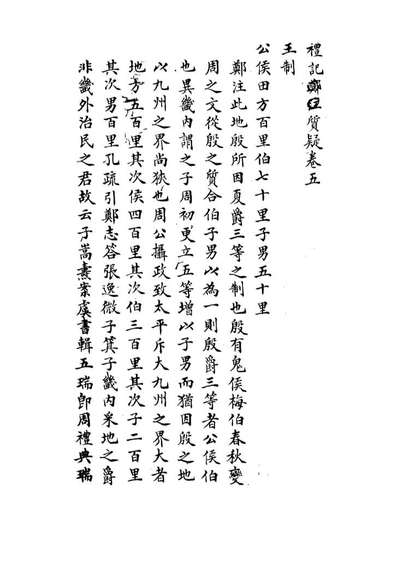 禮記鄭註質疑卷五
王制
公侯田方百里伯七十里子男五十里
鄭注此地殷所因夏爵三等之制也殷有鬼侯梅伯春秋變
周之文從殷之質合伯子男以為一則殷爵三等者公侯伯
也異畿內謂之子周初更立五等增以子男而猶因殷之地
以九州之界尚狹也周公攝政致太平斥大九州之界大者
地方五百里其次侯四百里其次伯三百里其次子二百里
其次男百里孔疏引鄭志答張逸微子箕子畿內采地之爵
非畿外治民之君故云子嵩燾案虞書輯五瑞卽周禮典瑞